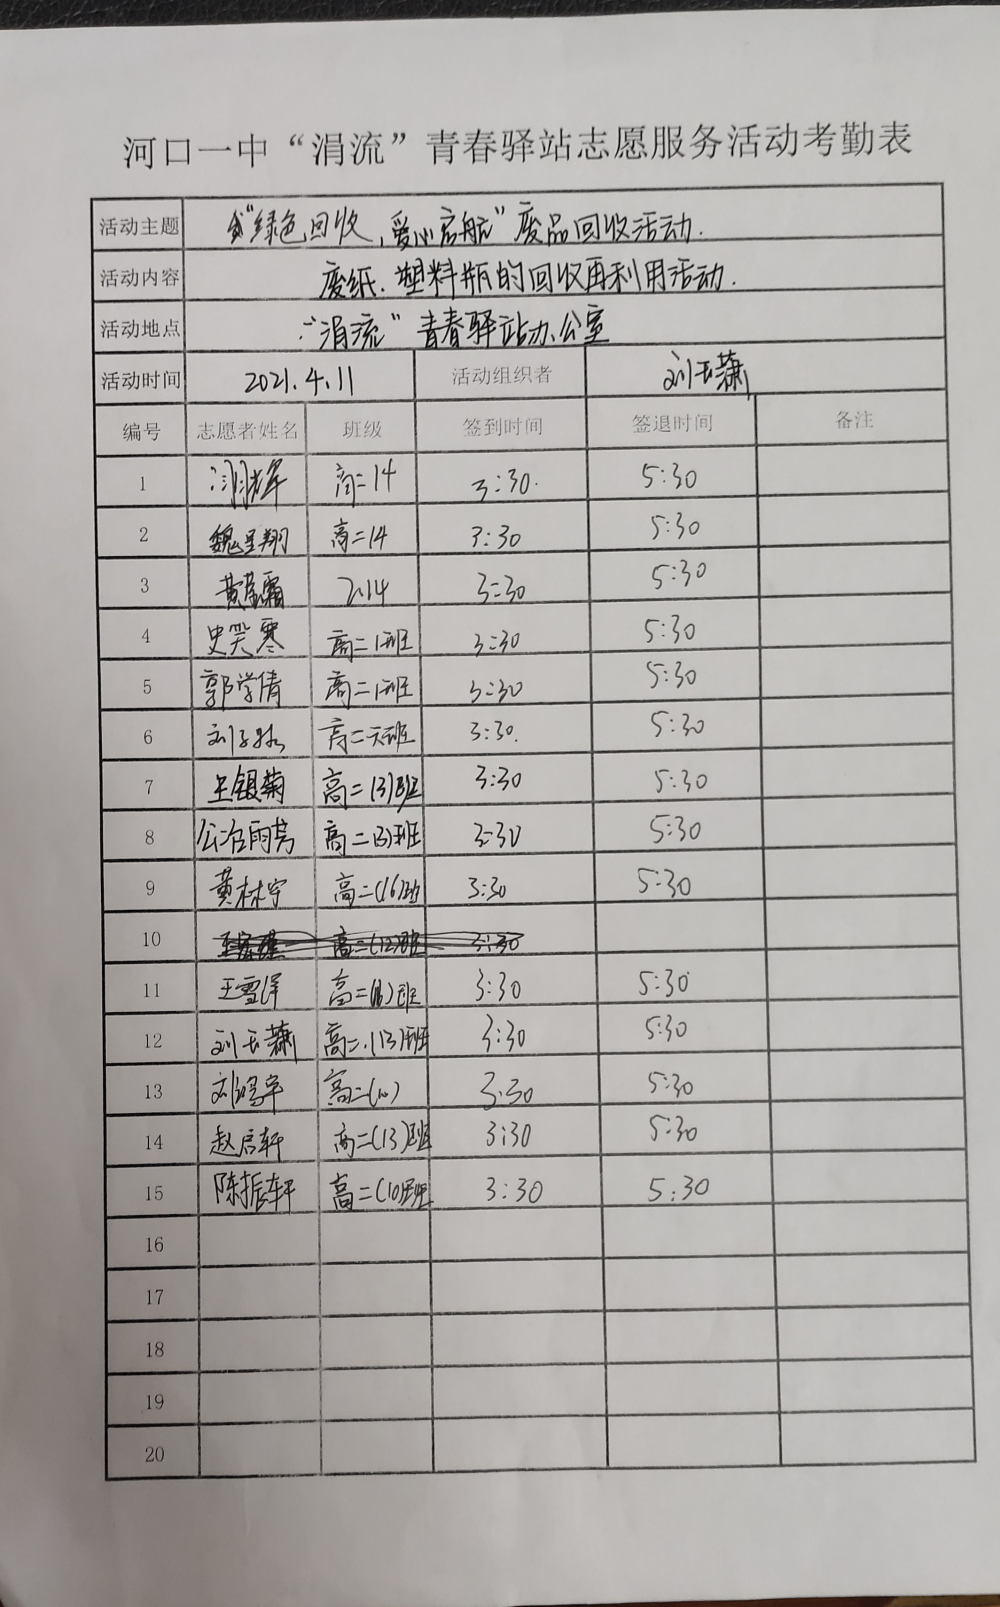 河口一中“涓流”青春驿站志愿服务活动考勤表
活动主题 “绿色回收，爱心启航”废品回收活动.
活动内容 废纸.塑料瓶的回收再利用活动.
活动地点 “涓流”青春驿站办公室
活动时间 2021.4.11 活动组织者 刘玉萧
编号 志愿者姓名 班级 签到时间 签退时间 备注
1 高二14 3:30. 5:30
2 魏呈翔 高二14 3:30 5:30
3 2.14 3:30 5:30
4 史笑寒 高二1班 3:30 5:30
5 郭学倩 高二1班 3:30 5:30
6 高二 3:30. 5:30
7 王银菊 高二13)班 3:30 5:30
8 公冶雨 高二(3)班 3:30 5:30
9 黄林宁 高二(16) 3:30 5:30
10 高二(12)班 3:30
11 王雪洋 高二 班 3:30 5:30
12 刘玉萧 高二.(13)班 3:30 5:30
13 高二 3:30 5:30
14 赵启轩 高二(13)班 3:30 5:30
15 陈振轩 高二(10班 3:30 5:30
16
17
18
19
20